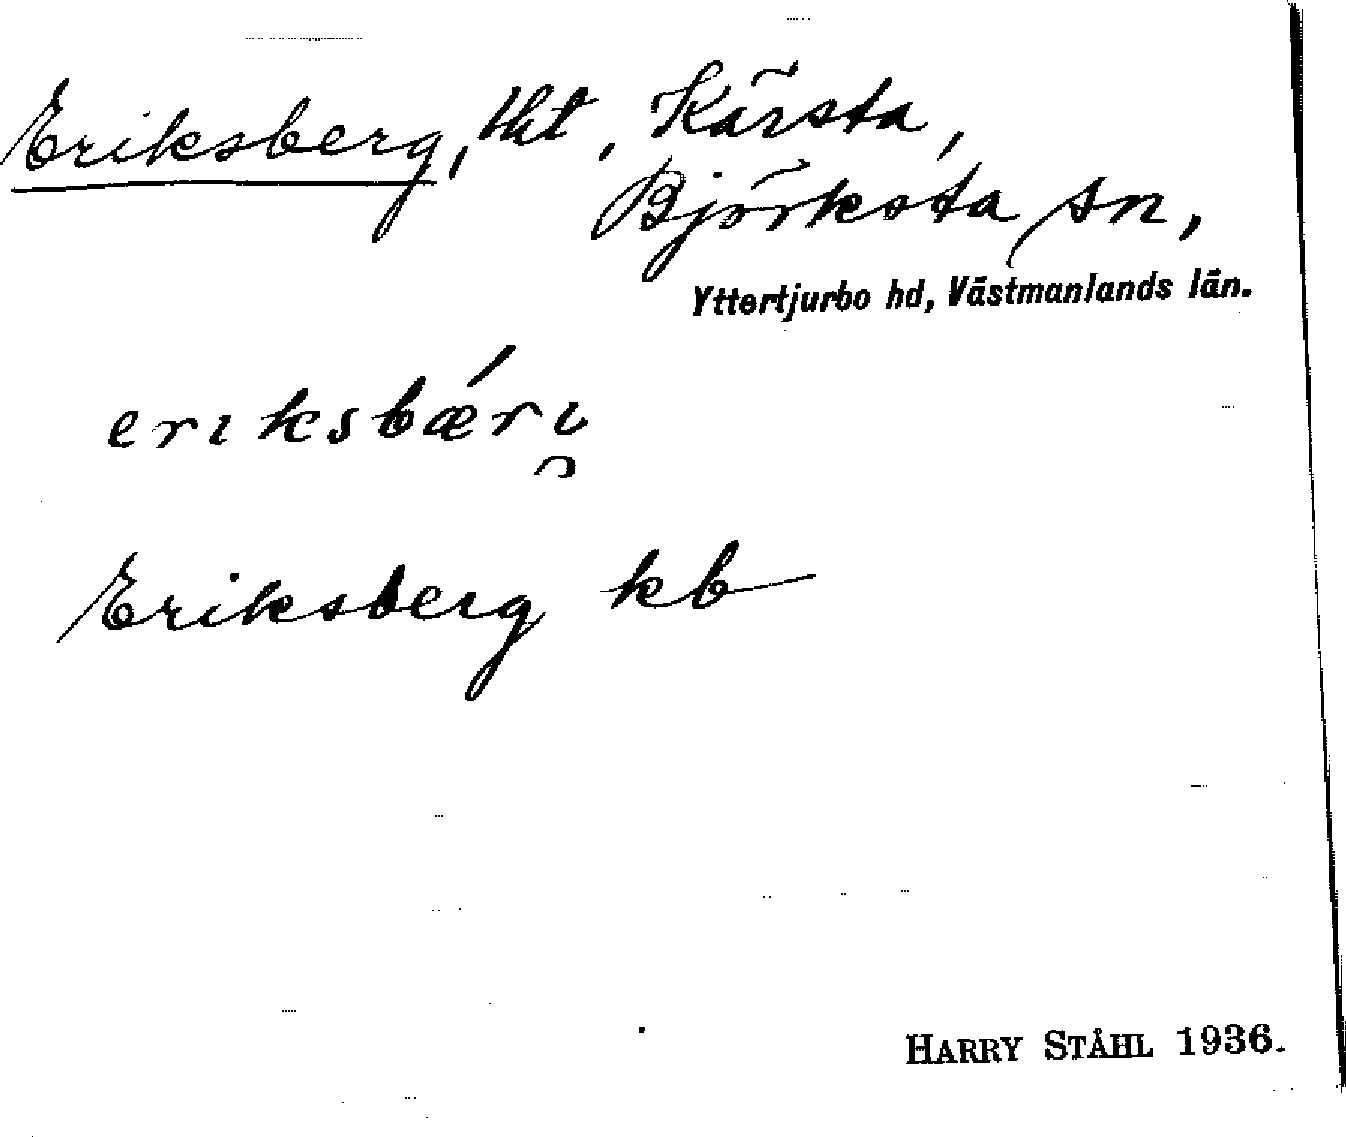 Eriksberg, lht, Kärsta,
Björksta sn,
Yttertjurbo hd, Västmanlands län.
eriksbǽri̯
Eriksberg kb
HARRY STÅHL 1936.